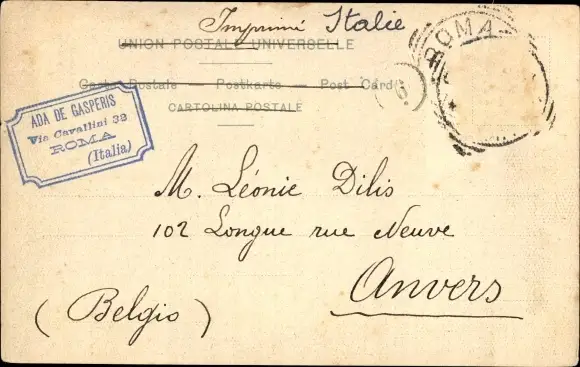 Imprimé Italie
UNION POSTALE UNIVERSELLE
Carte Postale Postkarte Post Card
CARTOLINA POSTALE
6
ROMA
ADA DE GASPERIS
Via Cavallini 32
ROMA
(Italia)
M. Léonie Dilis
102 Longue rue Neuve
Anvers
(Belgio)